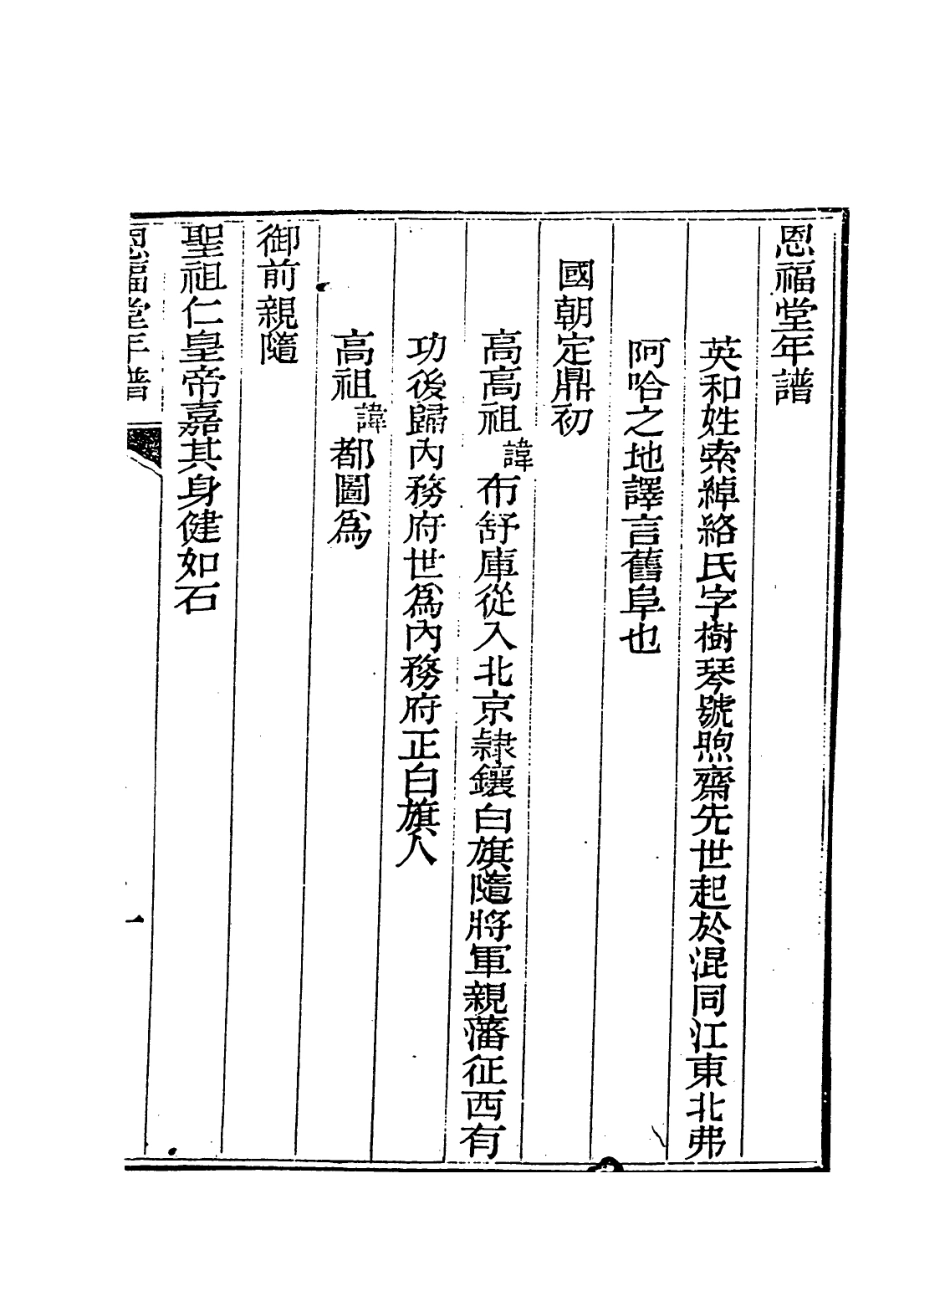 恩福堂年譜
英和姓索綽絡氏字樹琴號煦齋先世起於混同江東北弗
阿哈之地譯言舊阜也
國朝定鼎初
高高祖諱布舒庫從入北京隸鑲白旗隨將軍親藩征西有
功後歸內務府世爲內務府正白旗人
高祖諱都圖爲
御前親隨
聖祖仁皇帝嘉其身健如石
恩福堂年譜
一